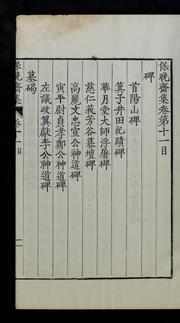 保晩齋集卷第十一目
碑
首陽山碑
箕子井田紀蹟碑
華月堂大師浮屠碑
慈仁莪芳谷墓壇碑
高麗文忠宣公神道碑
寅平尉貞孝鄭公神道碑
左議政翼獻李公神道碑
墓碣
保晩齋集
卷十一目